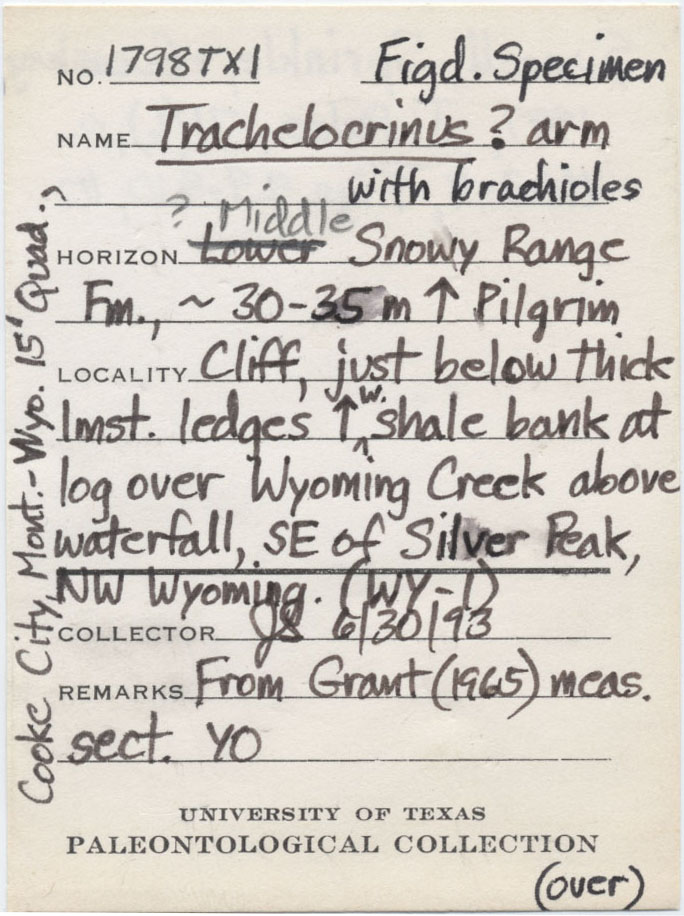 NO. 1798TX1 Figd. Specimen
NAME Trachelocrinus ? arm
with brachioles
? Middle
HORIZON Lower Snowy Range
Fm., ~ 30-35 m ↑ Pilgrim
LOCALITY Cliff, just below thick
lmst. ledges ↑ w. shale bank at
log over Wyoming Creek above
waterfall, SE of Silver Peak,
NW Wyoming. (WY-1)
COLLECTOR JS 6/30/93
REMARKS From Grant (1965) meas.
sect. YO
Cooke City, Mont.-Wyo. 15' Quad.,
UNIVERSITY OF TEXAS
PALEONTOLOGICAL COLLECTION
(over)